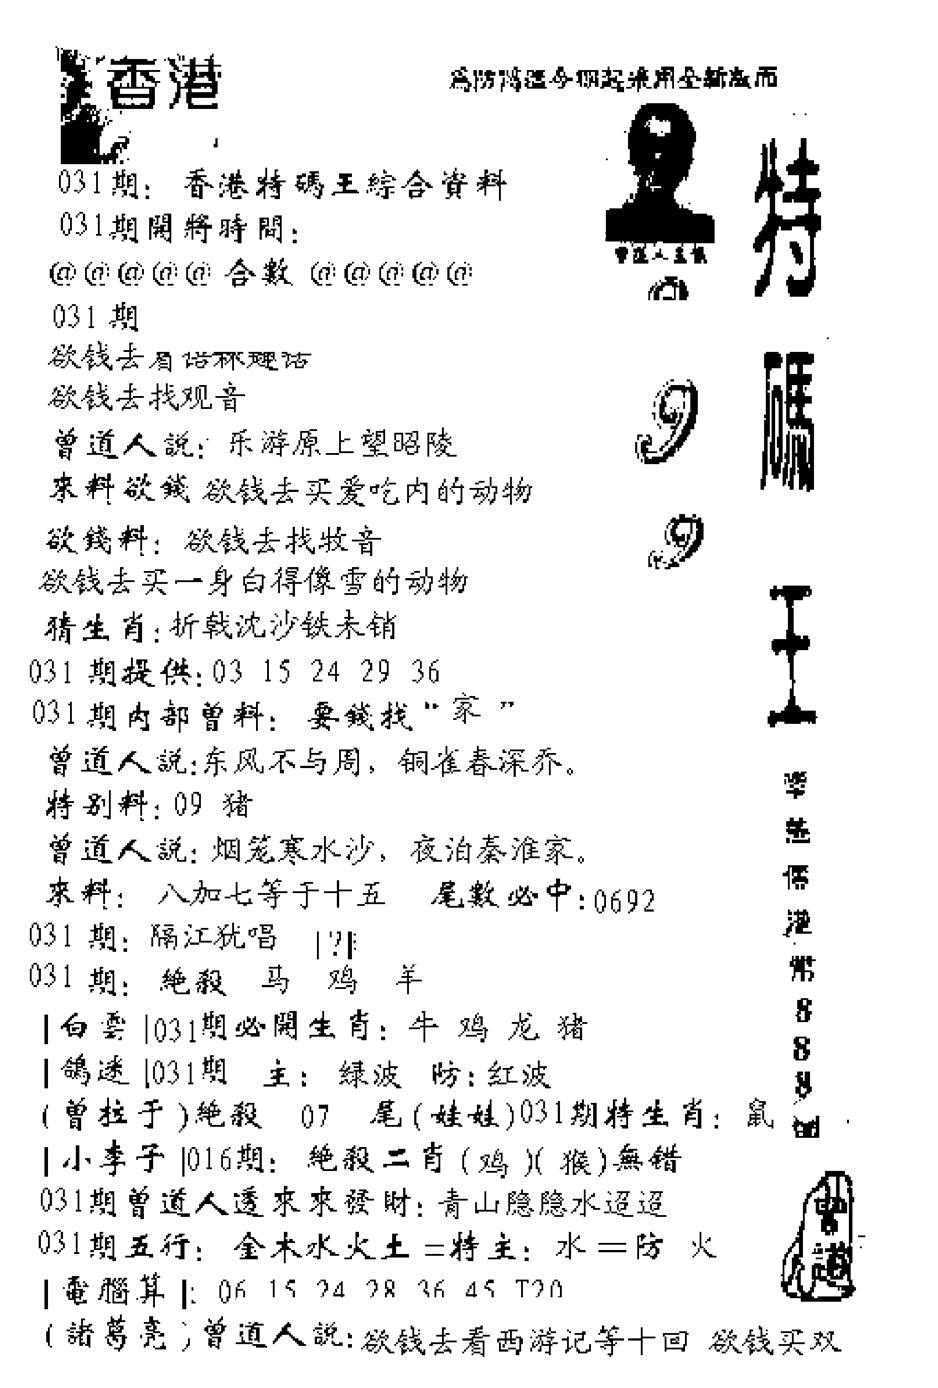 香港
031期：香港特碼王綜合資料
031期開將時間：
@@@@@合數@@@@@
031期
欲钱去看
欲钱去找观音
曾道人説：乐游原上望昭陵
來料欲錢 欲钱去买爱吃内的动物
欲錢料：欲钱去找牧音
欲钱去买一身白得像雪的动物
猜生肖：折戟沈沙铁未销
031期提供：03 15 24 29 36
031期内部曾料：要錢找“家”
曾道人説：东风不与周，铜雀春深乔。
特别料：09 猪
曾道人説：烟笼寒水沙，夜泊秦淮家。
來料：八加七等于十五 尾數必中：0692
031期：隔江犹唱 |?|
031期：絶殺 马 鸡 羊
|白雲|031期必開生肖：牛 鸡 龙 猪
|鴿迷|031期 主：绿波 防：红波
(曾拉于)絶殺 07 尾(娃娃)031期特生肖：鼠
|小李子|016期：絶殺二肖(鸡)(猴)無錯
031期曾道人透來來發財：青山隐隐水迢迢
031期五行：金木水火土=特主：水=防 火
|電腦算|：06 15 24 28 36 45 T20
(諸葛亮)曾道人説：欲钱去看西游记等十回 欲钱买双
9
9
特
碼
王
港
幣
8
8
8
曾道